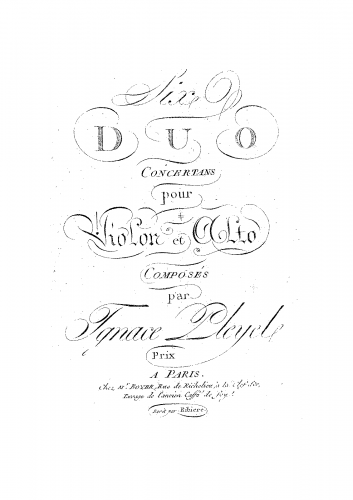 Six
DUO
CONCERTANS
pour
Violon et Alto
COMPOSÉS
par
Ignace Pleyel
Prix
A PARIS.
Chez Mr. BOYER, Rue de Richelieu, à la Clef d'Or,
Passage de l'ancien Caffé de Foy.
Ecrit par Ribiere